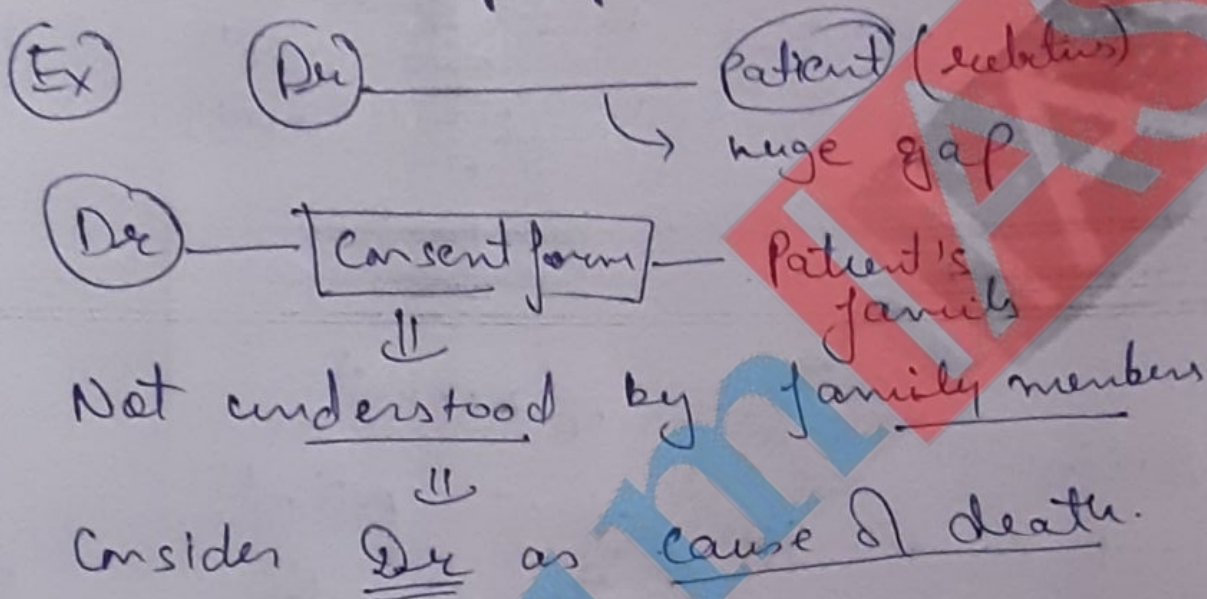 Ex Dr Patient (relatives)
huge gap
Dr Consent form Patient's
family
Not understood by family members
Consider Dr as cause of death.
IAS